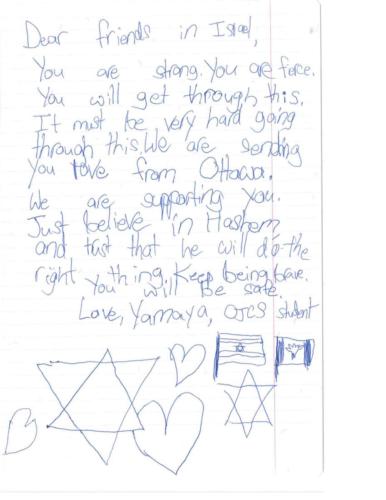 Dear friends in Israel,
You are strong. You are fierce.
You will get through this.
It must be very hard going
through this. We are sending
you love from Ottawa.
We are supporting you.
Just believe in Hashem
and trust that he will do the
right thing. Keep being brave.
You will be safe.
Love, Yamaya, OJCS student